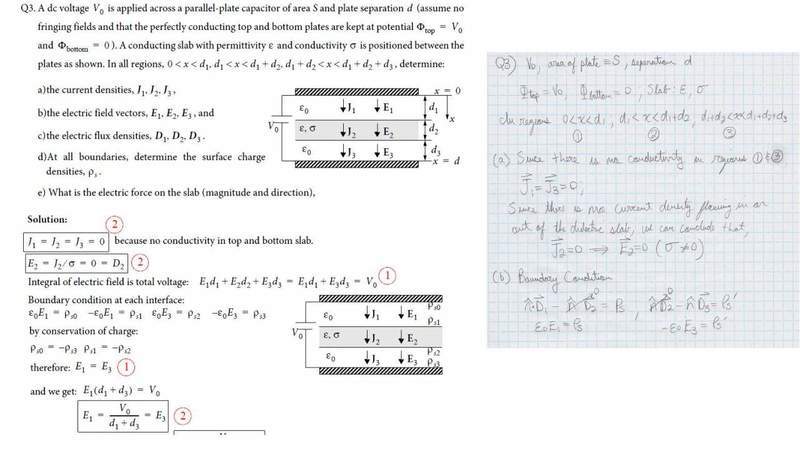 Q3. A dc voltage V₀ is applied across a parallel-plate capacitor of area S and plate separation d (assume no
fringing fields and that the perfectly conducting top and bottom plates are kept at potential Φtop = V₀
and Φbottom = 0). A conducting slab with permittivity ε and conductivity σ is positioned between the
plates as shown. In all regions, 0 < x < d₁, d₁ < x < d₁ + d₂, d₁ + d₂ < x < d₁ + d₂ + d₃, determine:
a)the current densities, J₁, J₂, J₃,
b)the electric field vectors, E₁, E₂, E₃, and
c)the electric flux densities, D₁, D₂, D₃.
d)At all boundaries, determine the surface charge
densities, ρs.
e) What is the electric force on the slab (magnitude and direction),
x = 0
ε₀ J₁ E₁ d₁
x
V₀ ε, σ J₂ E₂ d₂
ε₀ J₃ E₃ d₃
x = d
Solution:
2
J₁ = J₂ = J₃ = 0 because no conductivity in top and bottom slab.
E₂ = J₂/σ = 0 = D₂ 2
Integral of electric field is total voltage: E₁d₁ + E₂d₂ + E₃d₃ = E₁d₁ + E₃d₃ = V₀ 1
Boundary condition at each interface:
ε₀E₁ = ρs0 −ε₀E₁ = ρs1 ε₀E₃ = ρs2 −ε₀E₃ = ρs3
by conservation of charge:
ρs0 = −ρs3 ρs1 = −ρs2
therefore: E₁ = E₃ 1
and we get: E₁(d₁ + d₃) = V₀
E₁ = V₀ / (d₁ + d₃) = E₃ 2
ρs0
ε₀ J₁ E₁ ρs1
V₀ ε, σ J₂ E₂
ρs2
ε₀ J₃ E₃ ρs3
Q3) V₀, area of plate = S, separation d
Φtop = V₀, Φbottom = 0, Slab: ε, σ
In regions 0<x<d₁, d₁<x<d₁+d₂, d₁+d₂<x<d₁+d₂+d₃
① ② ③
(a) Since there is no conductivity in regions ① & ③
J₁ = J₃ = 0,
Since there is no current density flowing in or
out of the dielectric slab, we can conclude that,
J₂ = 0 ⟹ E₂ = 0 (σ ≠ 0)
(b) Boundary Condition
n̂·D₁ − n̂·D₂ = ρs , n̂·D₂ − n̂·D₃ = ρs'
ε₀E₁ = ρs −ε₀E₃ = ρs'